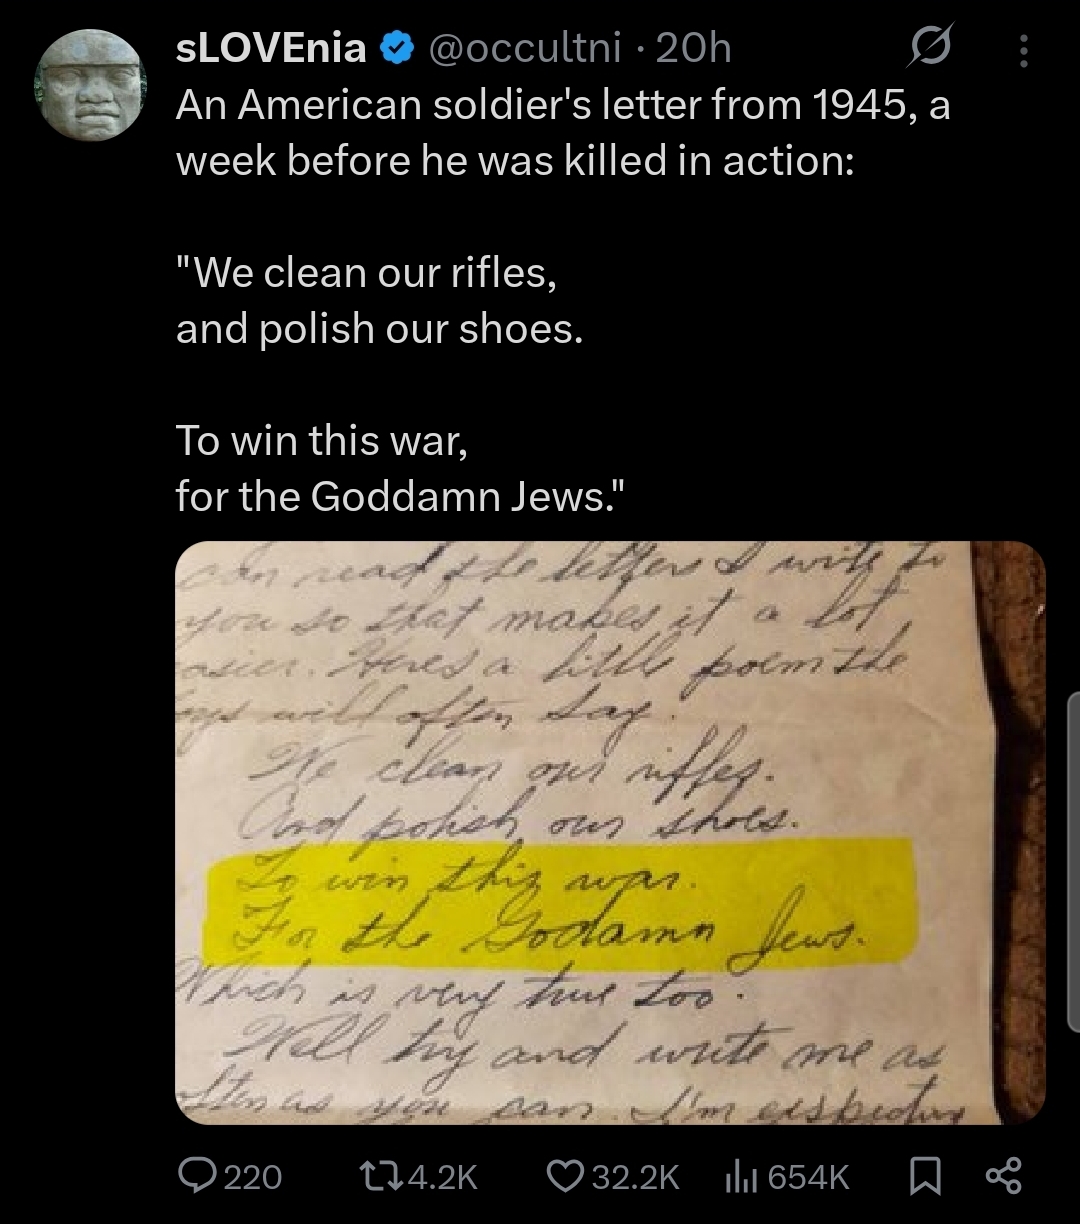 sLOVEnia @occultni · 20h
An American soldier's letter from 1945, a
week before he was killed in action:
"We clean our rifles,
and polish our shoes.
To win this war,
for the Goddamn Jews."
can read the letters I write to
you so that makes it a lot
easier. Heres a little poem the
boys will often say.
We clean our riffles.
And polish our shoes.
To win this war.
For the Godamn Jews.
Which is very true too.
Well try and write me as
often as you can. I'm
220 4.2K 32.2K 654K